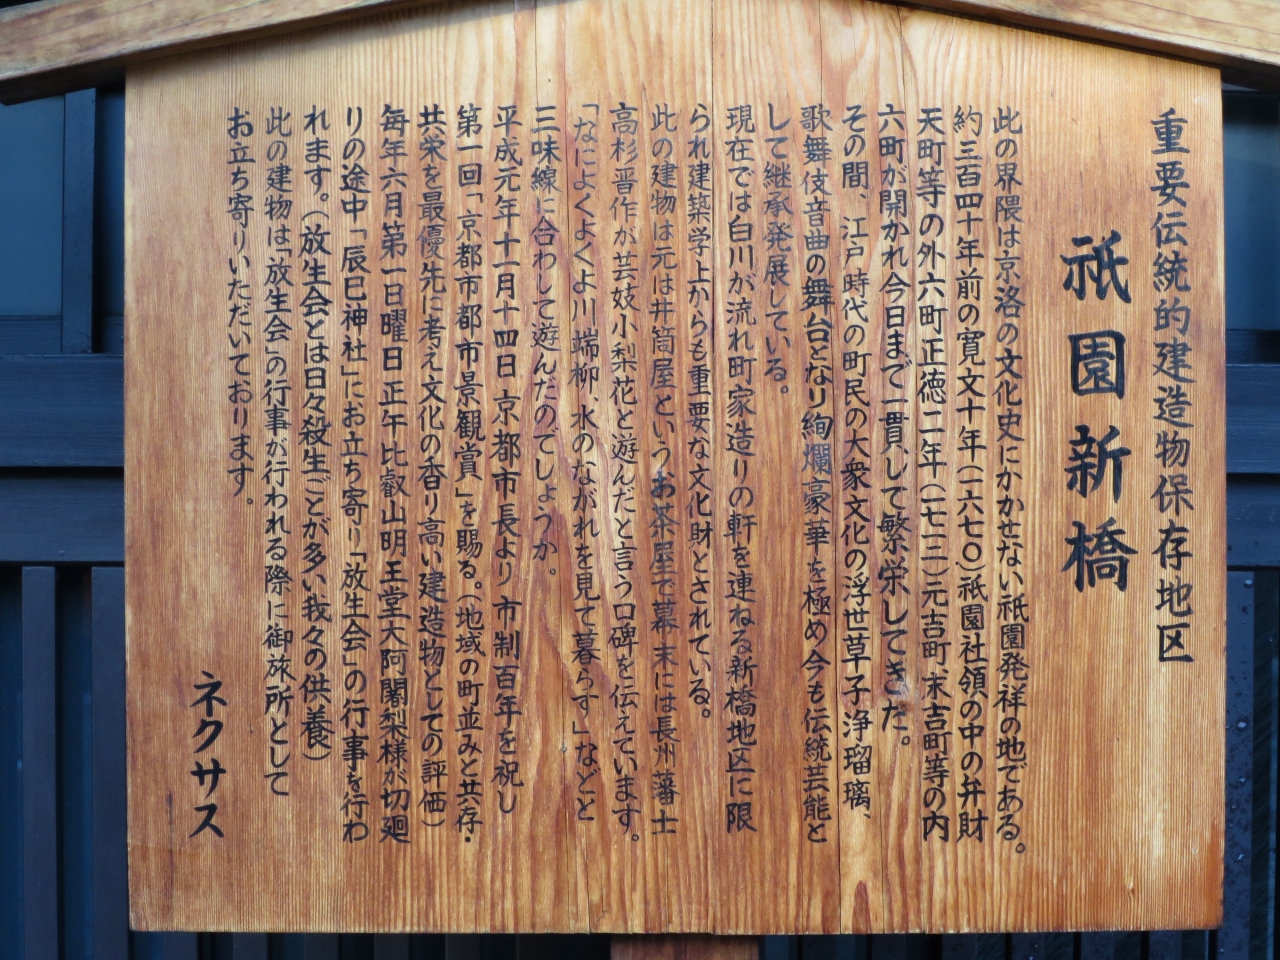 重要伝統的建造物保存地区
祇園新橋
此の界隈は京洛の文化史にかかせない祇園発祥の地である。
約三百四十年前の寛文十年(一六七〇)祇園社領の中の弁財
天町等の外六町正徳二年(一七一二)元吉町、末吉町等の内
六町が開かれ今日まで一貫して繁栄してきた。
その間、江戸時代の町民の大衆文化の浮世草子浄瑠璃、
歌舞伎音曲の舞台となり絢爛豪華を極め今も伝統芸能と
して継承発展している。
現在では白川が流れ町家造りの軒を連ねる新橋地区に限
られ建築学上からも重要な文化財とされている。
此の建物は元は井筒屋というお茶屋で幕末には長州藩士
高杉晋作が芸妓小梨花と遊んだと言う口碑を伝えています。
「なによくよくよ川端柳、水のながれを見て暮らす」などと
三味線に合わして遊んだのでしょうか。
平成元年十一月十四日京都市長より市制百年を祝し
第一回「京都市都市景観賞」を賜る。(地域の町並みと共存・
共栄を最優先に考え文化の香り高い建造物としての評価)
毎年六月第一日曜日正午比叡山明王堂大阿闍梨様が切廻
りの途中「辰巳神社」にお立ち寄り「放生会」の行事を行わ
れます。(放生会とは日々殺生ごとが多い我々の供養)
此の建物は「放生会」の行事が行われる際に御旅所として
お立ち寄りいただいております。
ネクサス